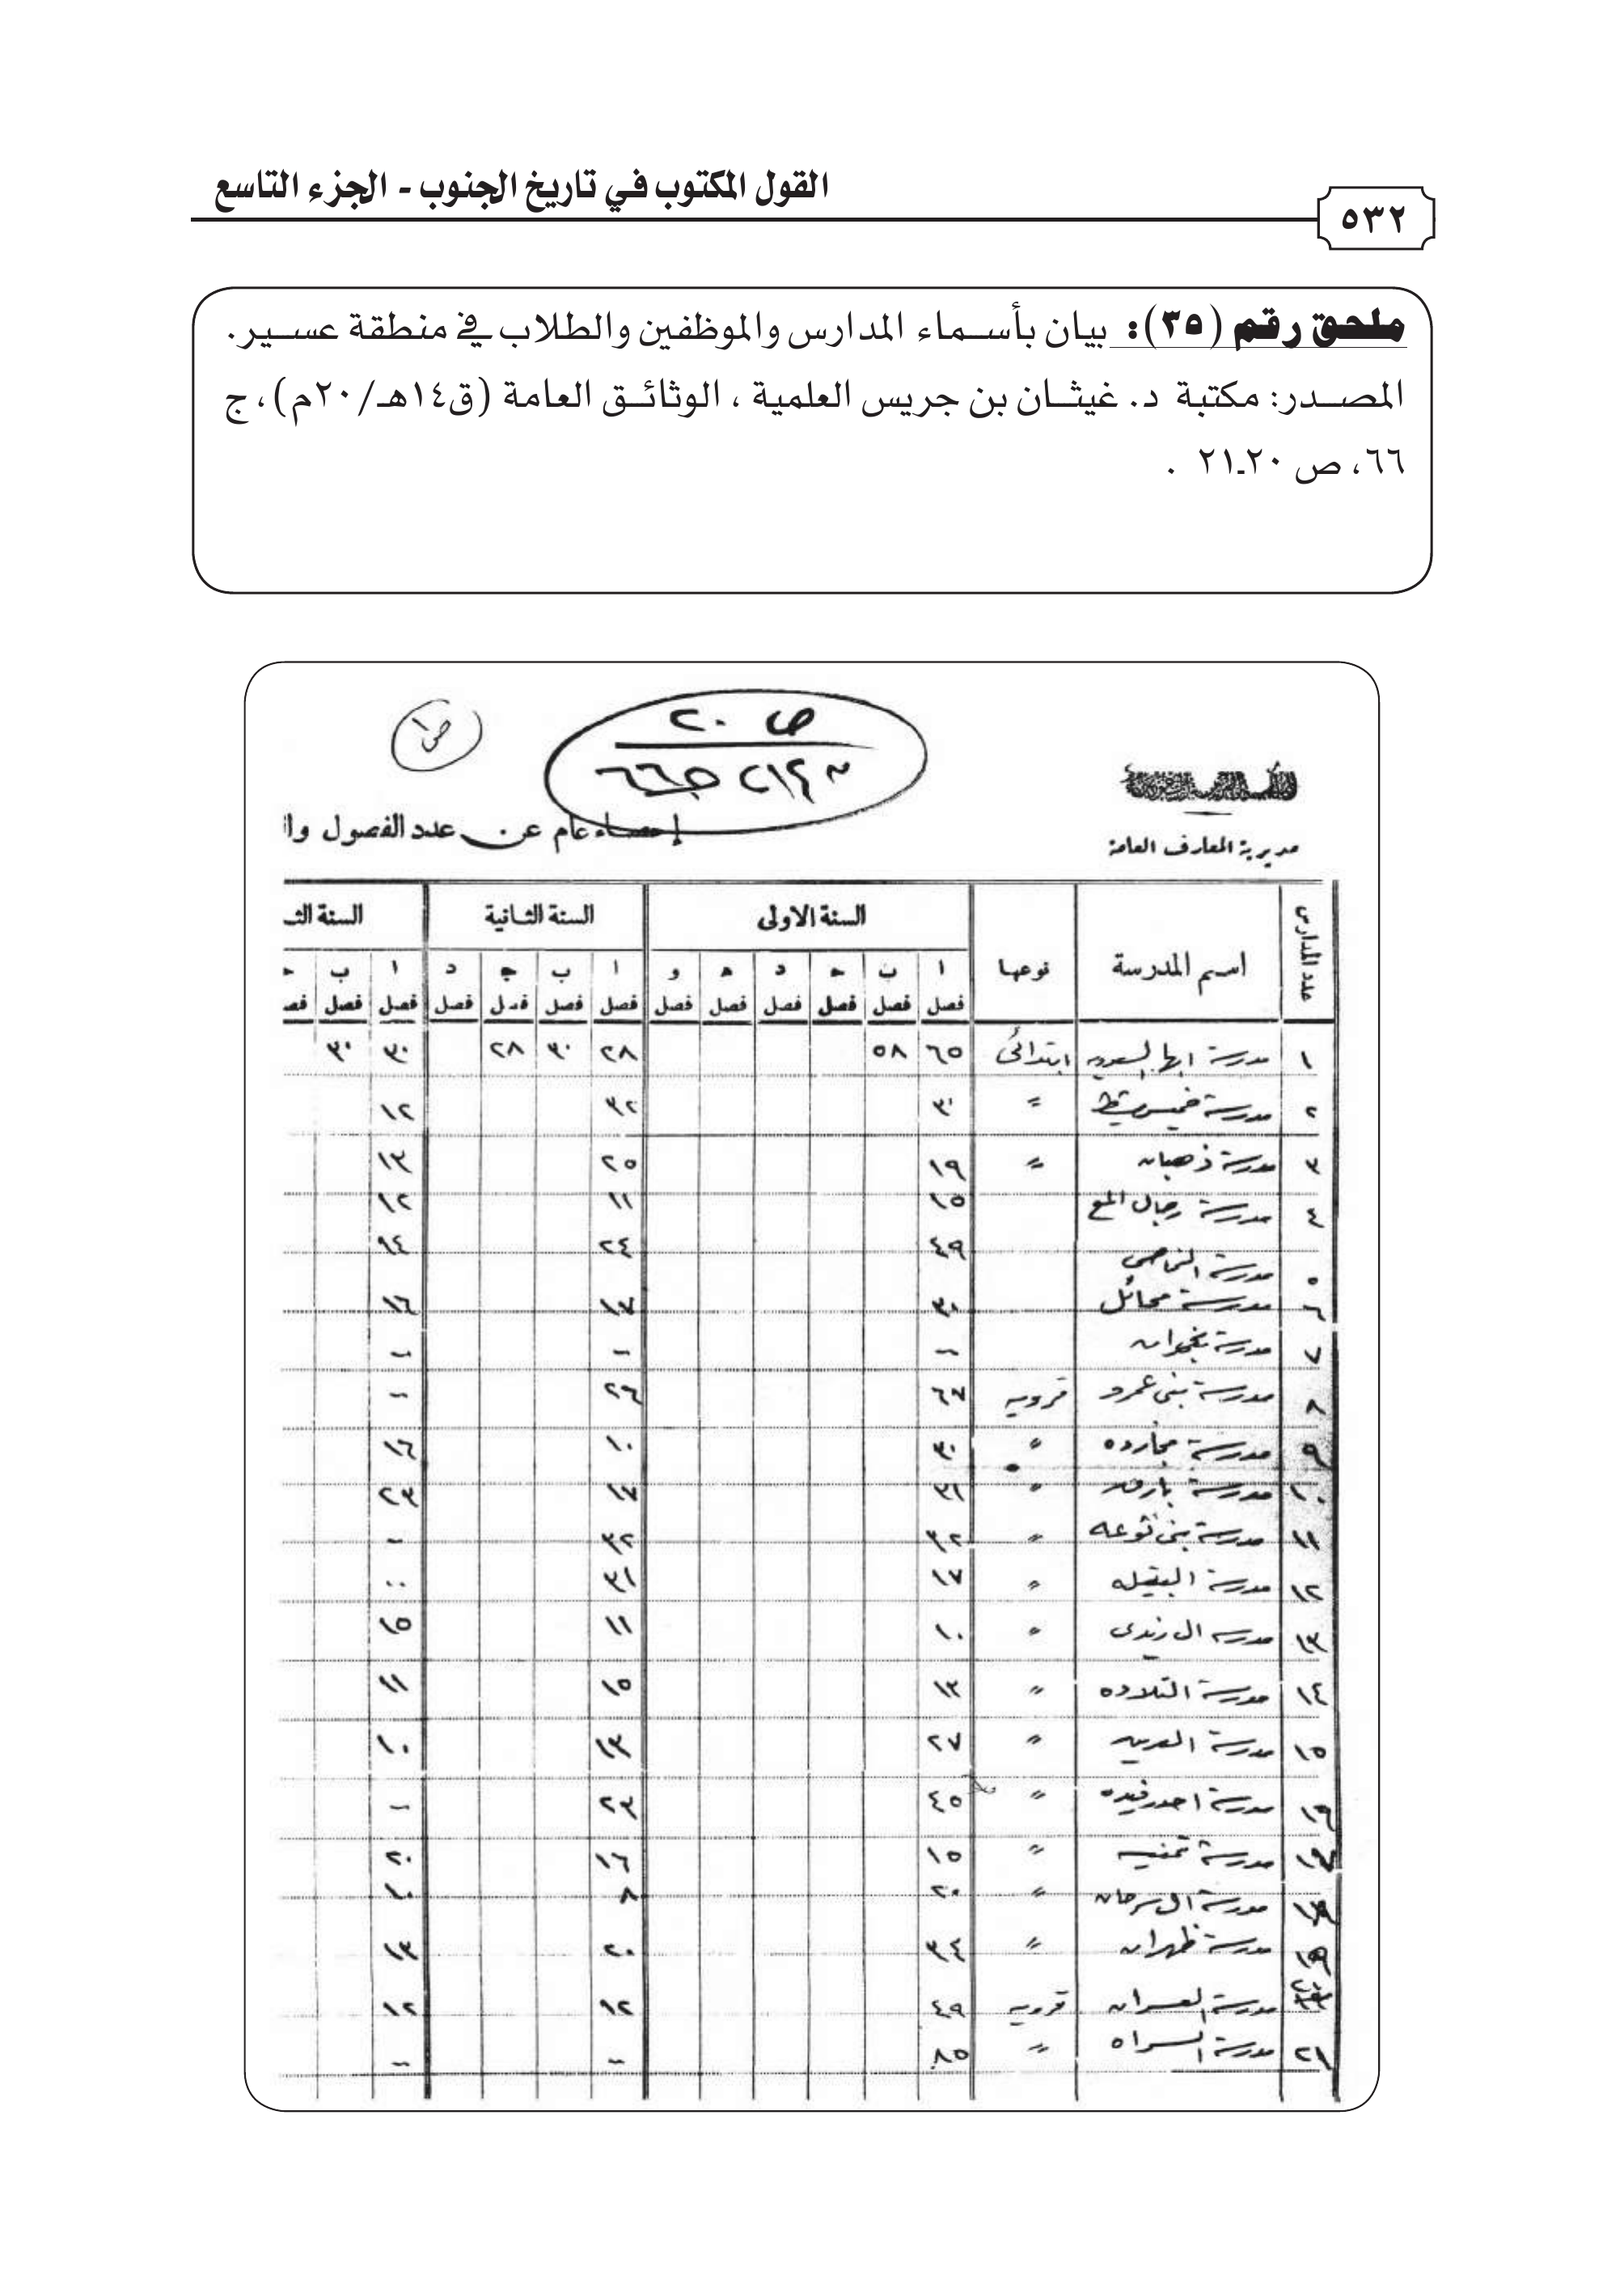 القول المكتوب في تاريخ الجنوب - الجزء التاسع
٥٣٢
ملحق رقم (٣٥): بيان بأسماء المدارس والموظفين والطلاب في منطقة عسير.
المصدر: مكتبة د. غيثان بن جريس العلمية ، الوثائق العامة (ق١٤هـ/٢٠م)، ج
٦٦، ص ٢٠ـ٢١ .
ص ٢٠
ص١
مديرية المعارف العامة
إحصاء عام عن عدد الفصول وا
عدد المدارس اسم المدرسة نوعها السنة الاولى السنة الثانية السنة الثـ
ا ب ج د ه و ا ب ج د ا ب ج
فصل فصل فصل فصل فصل فصل فصل فصل فصل فصل فصل فصل فصـ
١ مدرسة ابها السعوديه ابتدائى ٦٥ ٥٨ ٢٨ ٣٠ ٢٨ ٣٠ ٣٠
٢ مدرسة خميس مشيط " ٣٠ ٣٢ ١٢
٣ مدرسة ذهبان " ١٩ ٢٥ ١٣
٤ مدرسة رجال المع ١٥ ١١ ١٢
٥ مدرسة النماص ٤٩ ٢٤ ١٤
٦ مدرسة محائل ٣٠ ١٧ ١٦
٧ مدرسة نجران - - -
٨ مدرسة بنى عمرو قرويه ٦٧ ٢٦ -
٩ مدرسة مجارده " ٣٠ ١٠ ١٦
١٠ مدرسة بارق " ٣١ ١٧ ٢٣
١١ مدرسة بنى ثوعه " ٣٢ ٣٢ -
١٢ مدرسة " ١٧ ٣١ ..
١٣ مدرسه ال زيدى " ١٠ ١١ ١٥
١٤ مدرسة التلاده " ١٣ ١٥ ١١
١٥ مدرسة " ٢٧ ١٣ ١٠
١٦ مدرسة احد رفيده " ٤٥ ٢٣ -
١٧ مدرسة تمنيه " ١٥ ١٦ ٢٠
١٨ مدرسة ال سرحان " ٢٠ ٨ ١٠
١٩ مدرسة ظهران " ٣٤ ٢٠ ١٣
مدرسة العسران قرويه ٤٩ ١٢ ١٢
٢١ مدرسة السراه " ٨٥ - -